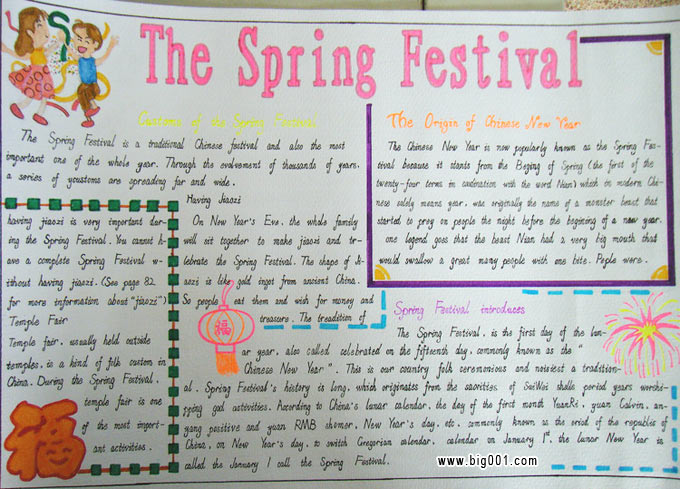 The Spring Festival
Customs of the Spring Festival
The Spring Festival is a traditional Chinese festival and also the most
important one of the whole year. Through the evolvement of thousands of years.
a series of youstoms are spreading far and wide.
Having Jiaozi
On New Year's Eve, the whole family
will sit together to make jiaozi and te-
lebrate the Spring Festival. The shape of ji-
aozi is like gold ingot from ancient China.
So people eat them and wish for money and
treasure. The treadition of
having jiaozi is very important der-
ing the Spring Festival. You cannot h-
ave a complete Spring Festival w-
ithout having jiaozi. (See page 82
for more information about "jiaozi")
Temple Fair
Temple fair, usually held outside
temples, is a kind of folk custom in
China. During the Spring Festival,
temple fair is one
of the most import-
ant activities.
福
福
The Origin of Chinese New Year
The Chinese New Year is now popularly known as the Spring Fes-
tival because it starts from the Beging of Spring (the first of the
twenty-four terms in coodination with the word Nian) which in modern Chi-
nese solely means year, was originally the name of a monster beast that
started to prey on people the night before the beginning of a new year.
one legend goes that the beast Nian had a very big mouth that
would swallow a great many people with one bite. Pople were.
Spring Festival introduces
The Spring Festival, is the first day of the lun-
ar year, also called celebrated on the fifteenth day, commonly known as the "
Chinese New Year". This is our country folk ceremonious and noisiest a tradition-
al. Spring Festival's history is long, which originates from the sacrifices of SuiWei shalls period years worshi-
pping god activities. According to China's lunar calendar, the day of the first month YuanRi, yuan Calvin, an-
yang positive and yuan RMB shomer, New Year's day, etc, commonly known as the eriod of the republic of
China, on New Year's day, to switch Gregorian calendar, calendar on January 1st, the lunar New Year is
called the January 1 call the Spring Festival.
www.big001.com